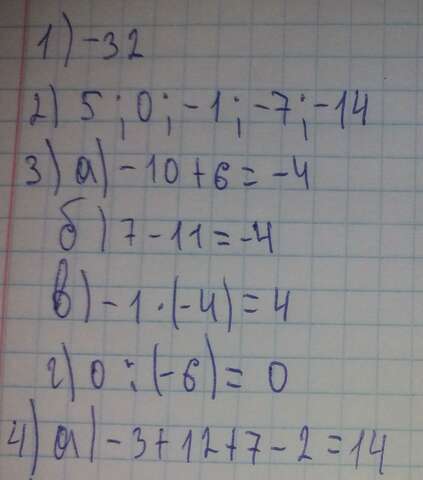 1) -32
2) 5; 0; -1; -7; -14
3) а) -10+6=-4
б) 7-11=-4
в) -1·(-4)=4
г) 0:(-6)=0
4) а) -3+12+7-2=14